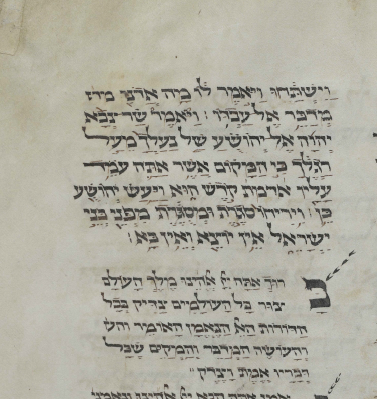 וישתחו ויאמר לו מה אדני מד
מדבר אל עבדו : ויאמר שר צבא
יהוה אל יהושע של נעלך מעל
רגלך כי המקום אשר אתה עמד
עליו אדמת קדש הוא ויעש יהושע
כן : ויריחו סגרת ומסגרת מפני בני
ישראל אין יוצא ואין בא :
ב רוך אתה יי אלהינו מלך העולם
צור כל העולמים צדיק בכל
הדורות האל הנאמן האומר ועש
ועושה המדבר ומקים שכל
דבריו אמת וצדק